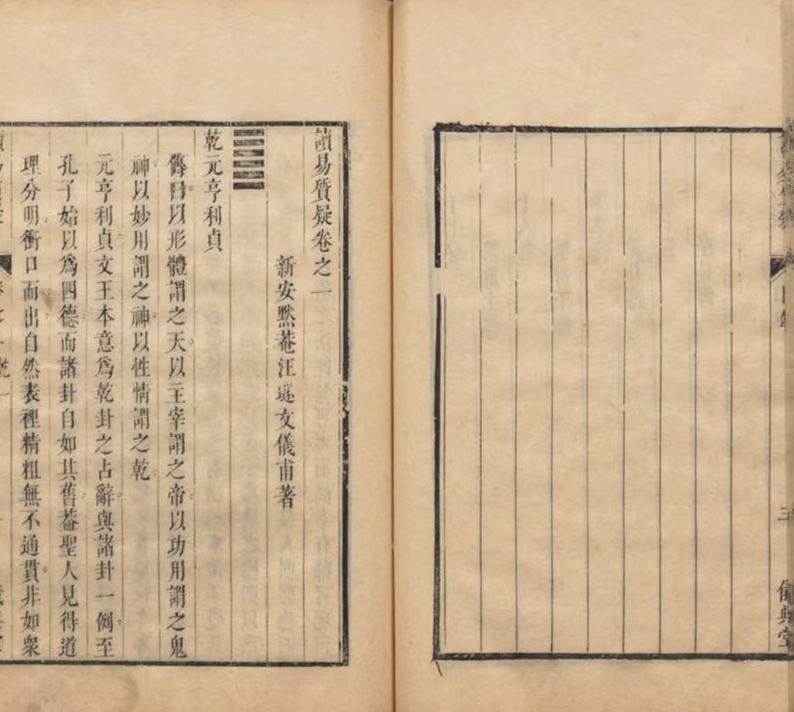 目錄 三 儀典堂
讀易質疑卷之一
新安默菴汪璲文儀甫著
乾元亨利貞
傳曰以形體謂之天以主宰謂之帝以功用謂之鬼
神以妙用謂之神以性情謂之乾
元亨利貞文王本意爲乾卦之占辭與諸卦一例至
孔子始以爲四德而諸卦自如其舊葢聖人見得道
理分明衝口而出自然表裡精粗無不通貫非如衆
卷之一乾 一